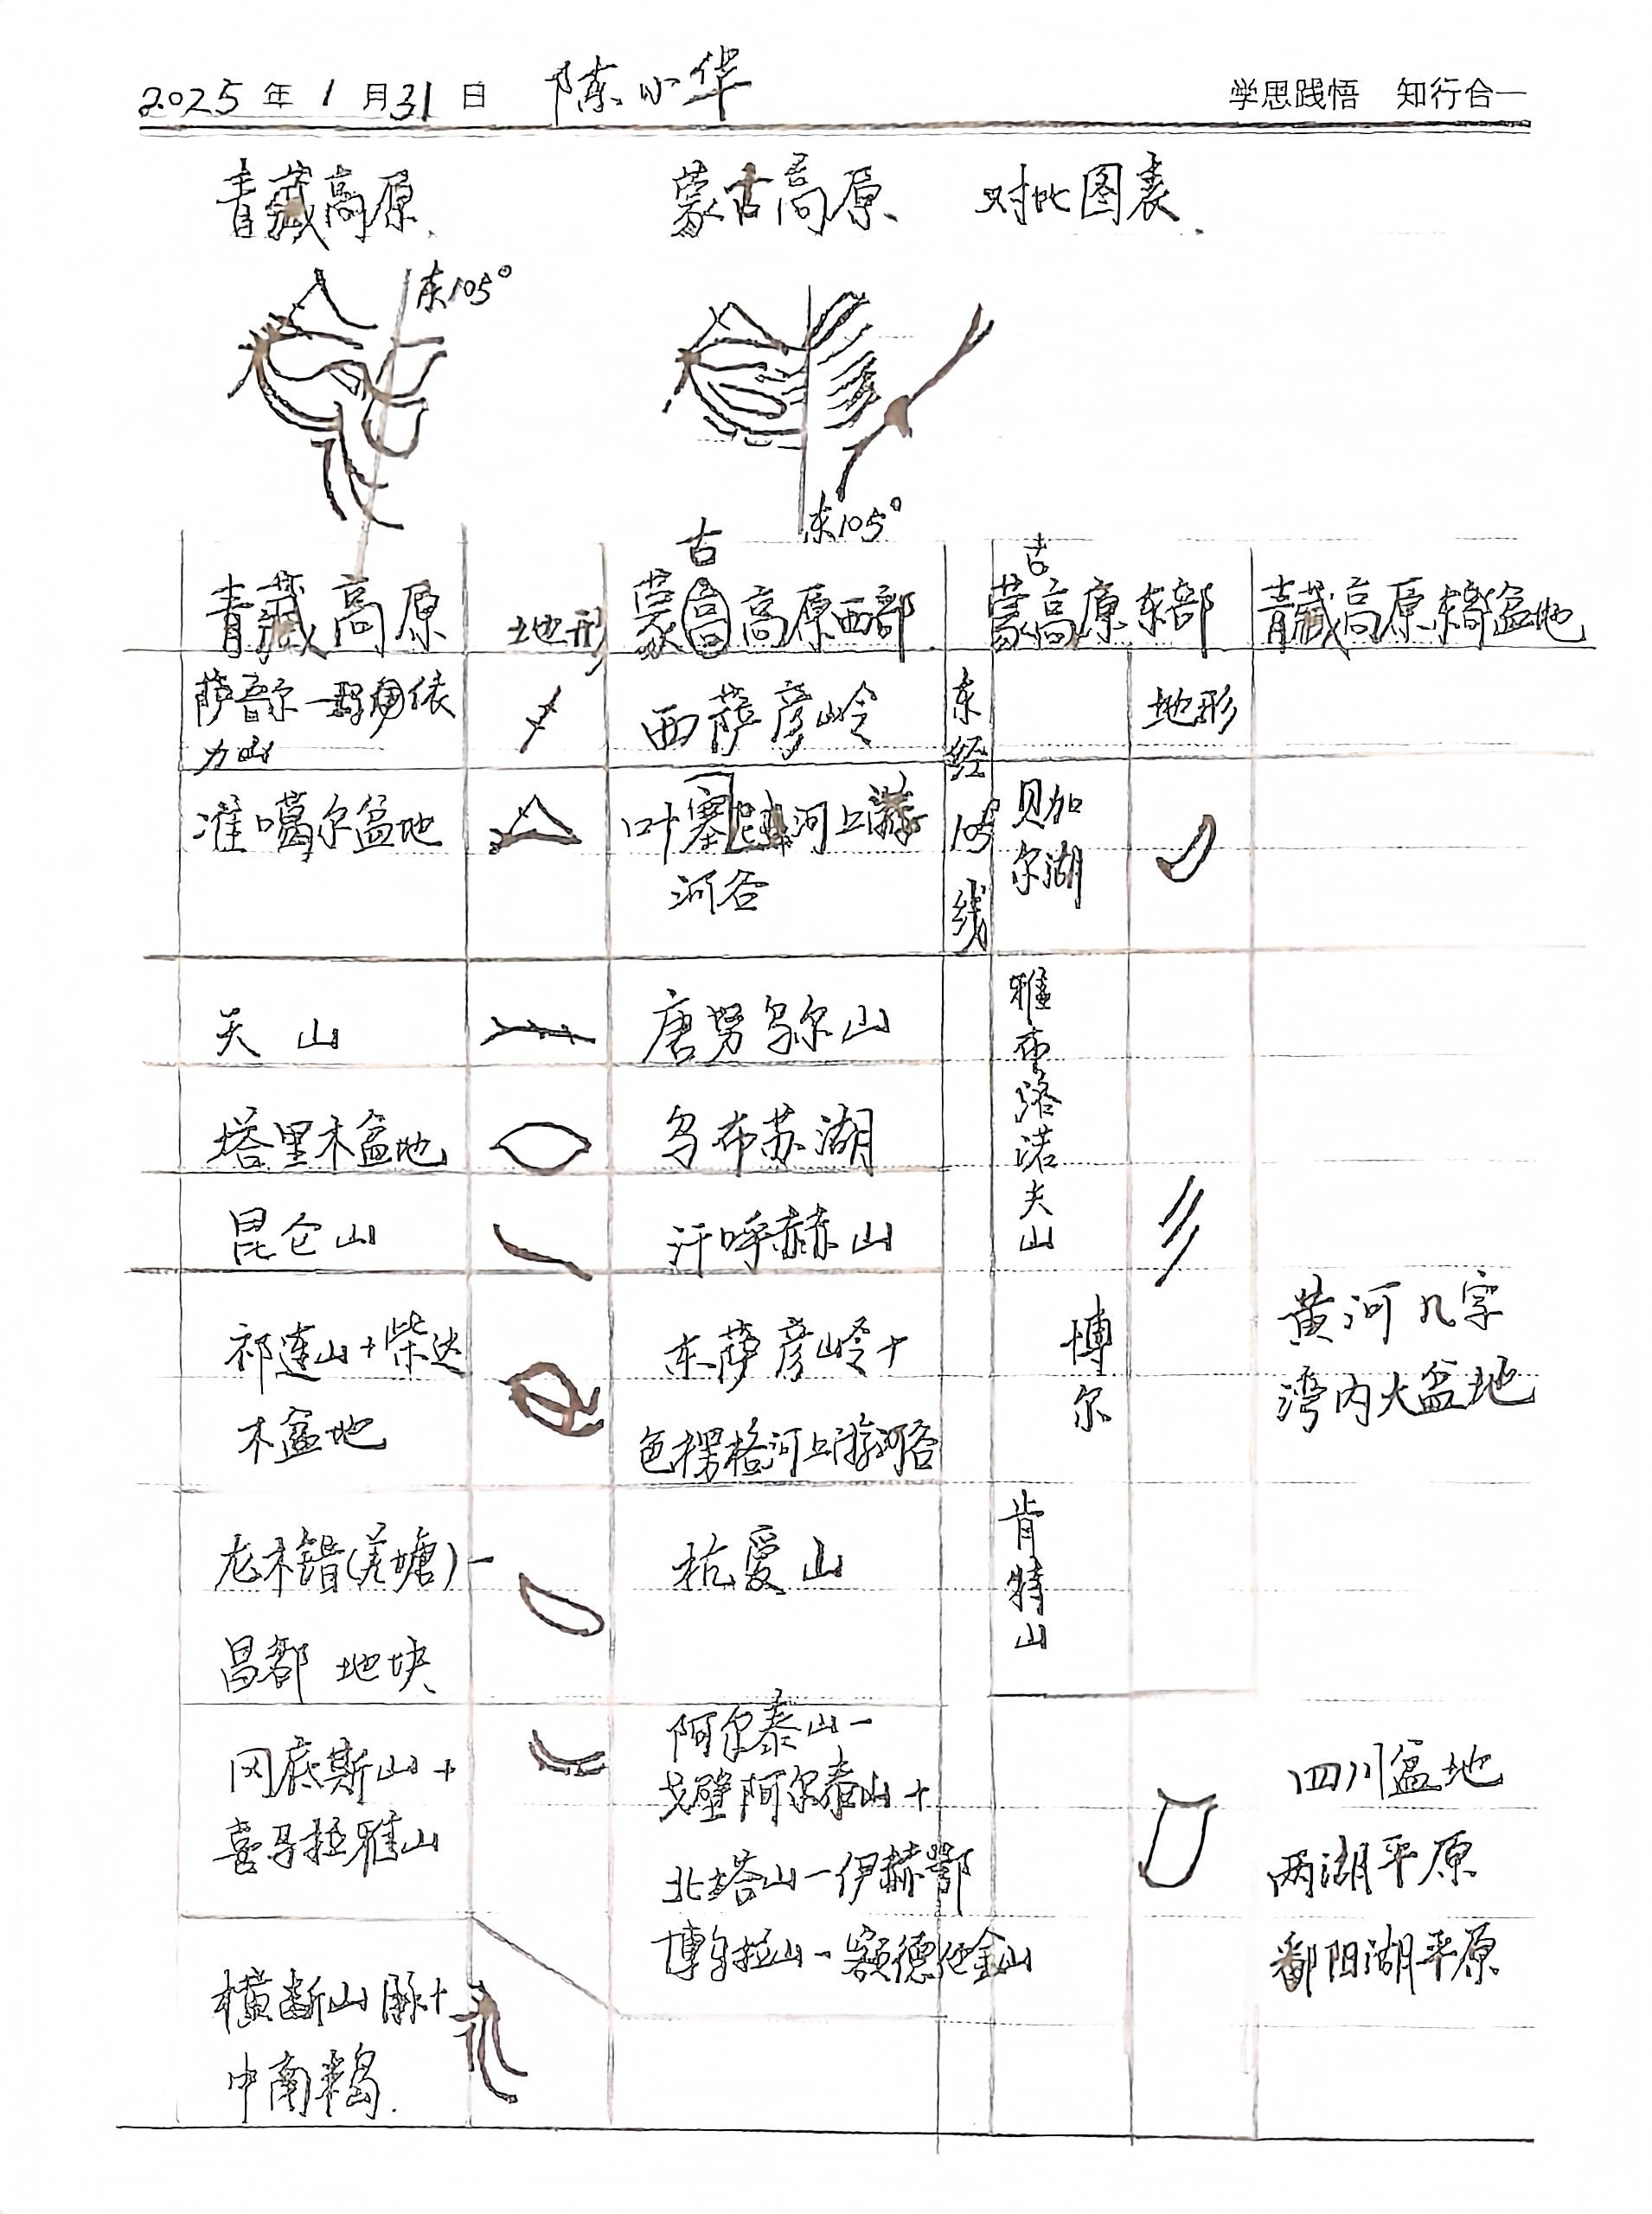 2025年1月31日 陈小华 学思践悟 知行合一
青藏高原 蒙古高原 对比图表
东105°
东105°
古 古
青藏高原 地形 蒙高原西部 蒙高原东部 青藏高原东部盆地
萨吾尔一
力山
西萨彦岭
东经105线
地形
准噶尔盆地
叶塞河上游
河谷
贝加
尔湖
天山 唐努乌尔山
雅布洛诺夫山
塔里木盆地 乌布苏湖
昆仑山 汗呼赫山
祁连山+柴达
木盆地
东萨彦岭+
色楞格河上游河谷
博尔
黄河几字
湾内大盆地
龙木错(羌塘)一
昌都 地块
杭爱山
肯特山
冈底斯山+
喜马拉雅山
阿尔泰山一
戈壁阿尔泰山+
北塔山一伊赫鄂
博尔拉山一额德他金山
四川盆地
两湖平原
鄱阳湖平原
横断山脉+
中南半岛.